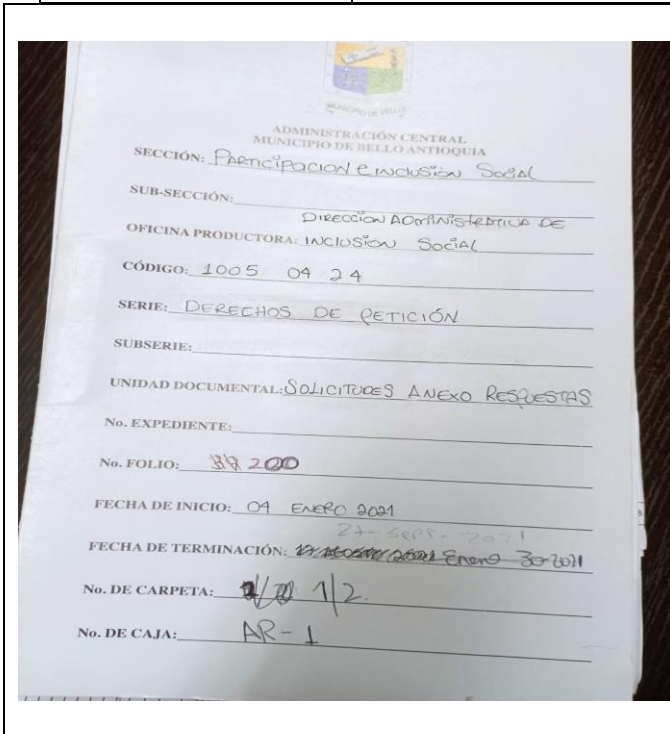 MUNICIPIO DE BELLO
ADMINISTRACIÓN CENTRAL
MUNICIPIO DE BELLO ANTIOQUIA
SECCIÓN: Participacion e inclusión Social
SUB-SECCIÓN:
DIRECCIÓN ADMINISTRATIVA DE
OFICINA PRODUCTORA: INCLUSIÓN Social
CÓDIGO: 1005 04 24
SERIE: DERECHOS DE PETICIÓN
SUBSERIE:
UNIDAD DOCUMENTAL: SOLICITUDES ANEXO RESPUESTAS
No. EXPEDIENTE:
No. FOLIO: 200
FECHA DE INICIO: 04 ENERO 2021
27-Sept-2021
FECHA DE TERMINACIÓN: Enero 30-2021
No. DE CARPETA: 1/2.
No. DE CAJA: AR-1